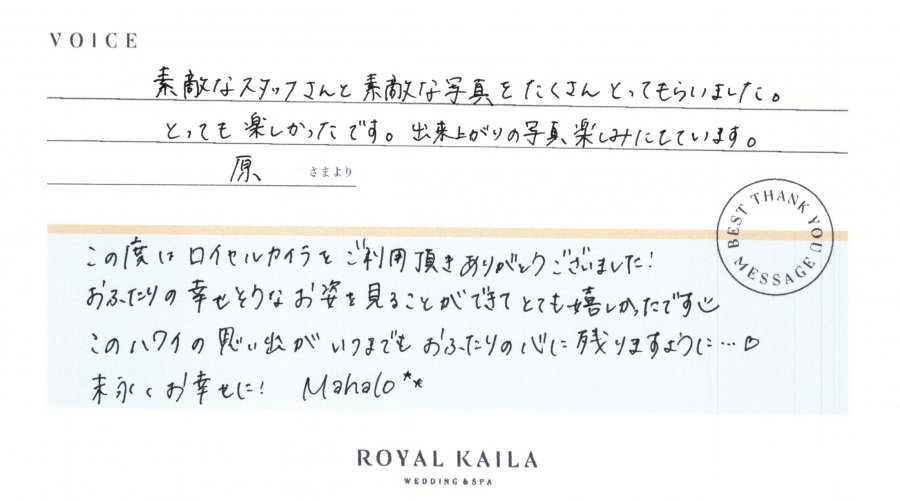 VOICE
素敵なスタッフさんと素敵な写真をたくさんとってもらいました。
とっても楽しかったです。出来上がりの写真、楽しみにしています。
原 さまより
BEST THANK YOU MESSAGE
この度はロイヤルカイラをご利用頂きありがとうございました!
おふたりの幸せそうなお姿を見ることができてとても嬉しかったです
このハワイの思い出がいつまでもおふたりの心に残りますように…♡
末永くお幸せに! Mahalo**
ROYAL KAILA
WEDDING & SPA